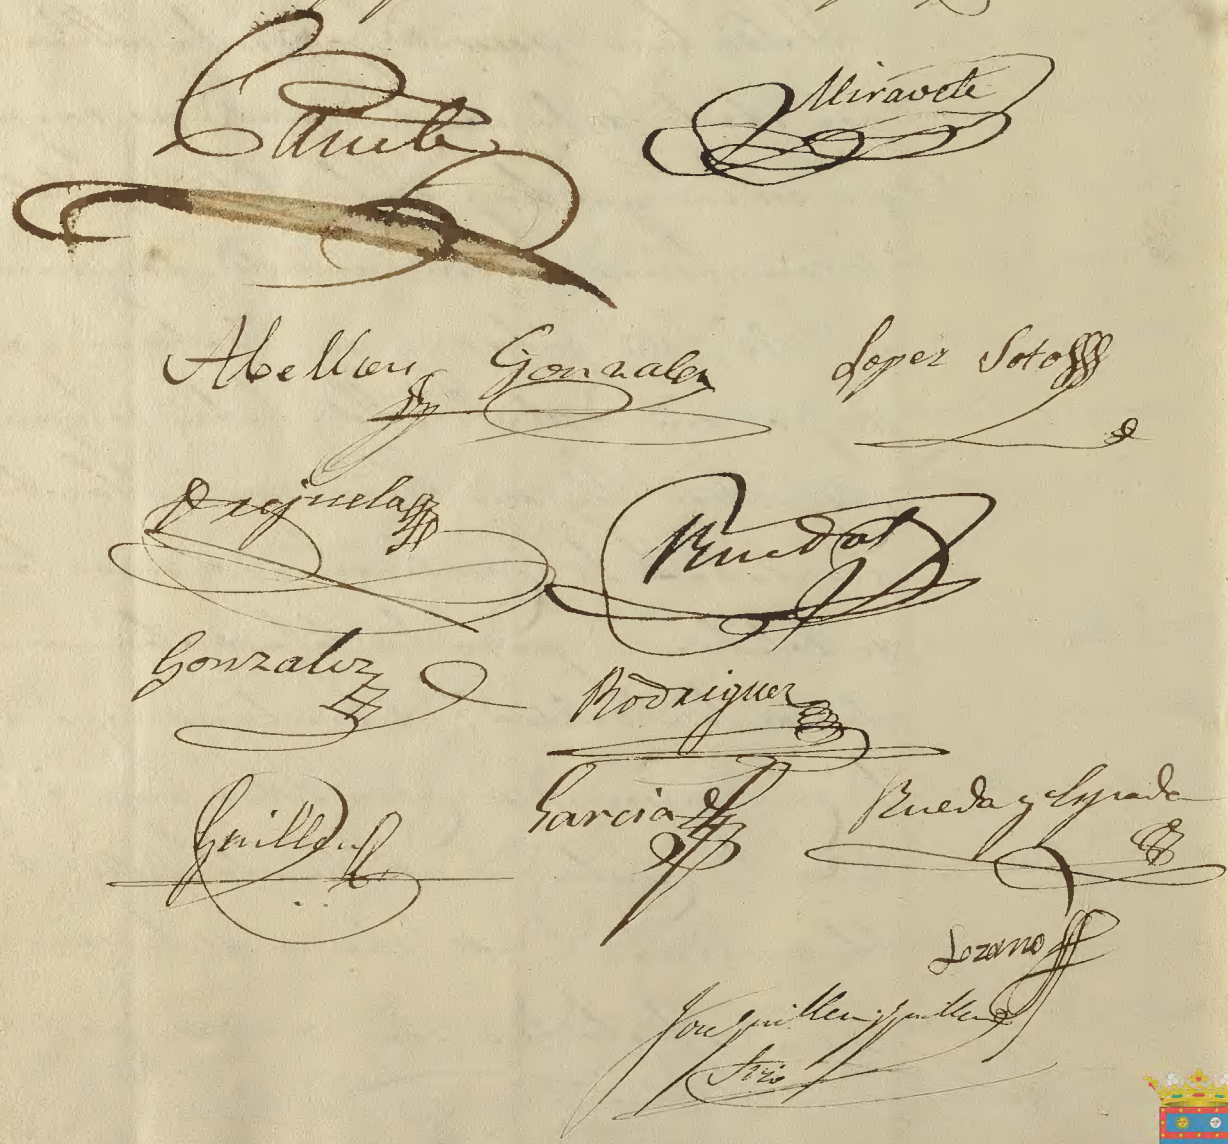 Cañete Miravete
Abellan Gonzalez Lopez Soto
Orejuela
Gonzalez Rodriguez
Guillen Garcia Rueda y
Lozano
Jose Guillen y Guillen
Srio